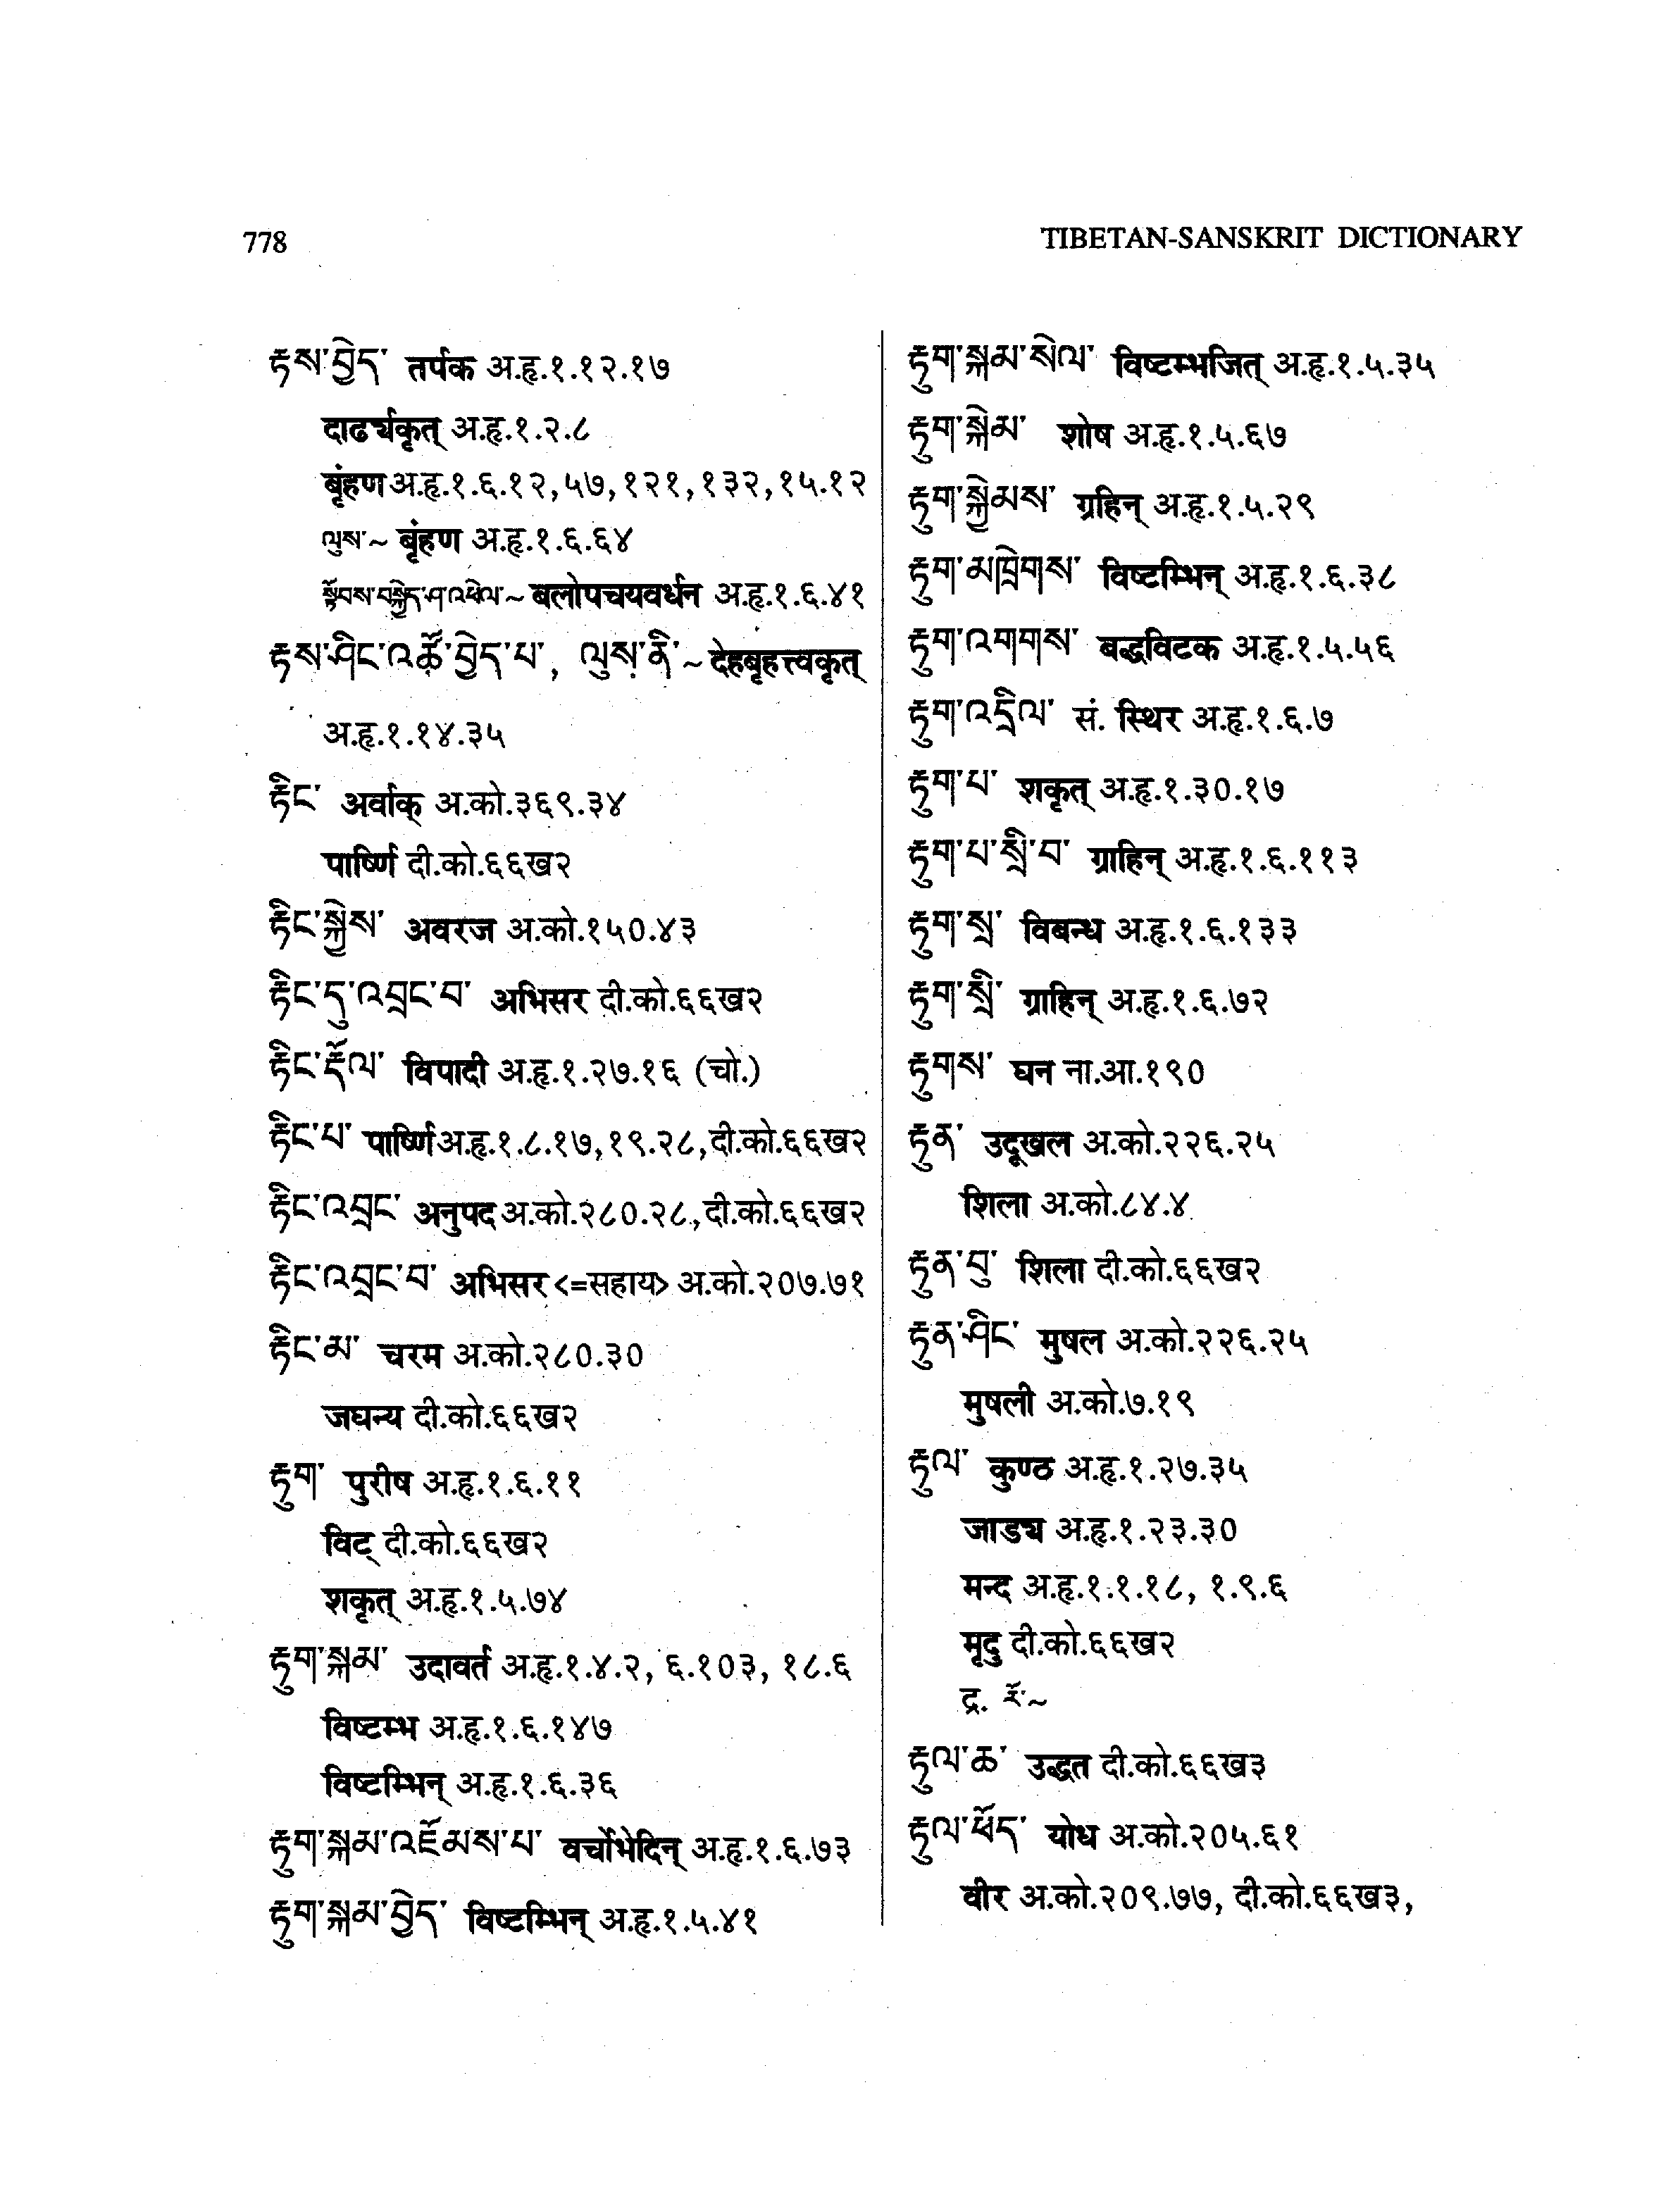 778
TIBETAN-SANSKRIT DICTIONARY
རྟས་བྱེད་ तर्पक अ.हृ.१.१२.१७
दार्ढ्यकृत् अ.हृ.१.२.८
बृंहण अ.हृ.१.६.१२,५७,१२१,१३२,१५.१२
ལུས་~ बृंहण अ.हृ.१.६.६४
སྟོབས་བསྐྱེད་ཤ་འཕེལ་~ बलोपचयवर्धन अ.हृ.१.६.४१
རྟས་ཤིང་འཚོ་བྱེད་པ་, ལུས་ནི་~ देहबृहत्त्वकृत्
अ.हृ.१.१४.३५
རྟིང་ अर्वाक् अ.को.३६९.३४
पार्ष्णि दी.को.६६ख२
རྟིང་སྐྱེས་ अवरज अ.को.१५०.४३
རྟིང་དུ་འབྲང་བ་ अभिसर दी.को.६६ख२
རྟིང་རྡོལ་ विपादी अ.हृ.१.२७.१६ (चो.)
རྟིང་པ་ पार्ष्णि अ.हृ.१.८.१७,१९.२८,दी.को.६६ख२
རྟིང་འབྲང་ अनुपद अ.को.२८०.२८,दी.को.६६ख२
རྟིང་འབྲང་བ་ अभिसर <=सहाय> अ.को.२०७.७१
རྟིང་མ་ चरम अ.को.२८०.३०
जघन्य दी.को.६६ख२
རྟུག་ पुरीष अ.हृ.१.६.११
विट् दी.को.६६ख२
शकृत् अ.हृ.१.५.७४
རྟུག་སྐམ་ उदावर्त अ.हृ.१.४.२, ६.१०३, १८.६
विष्टम्भ अ.हृ.१.६.१४७
विष्टम्भिन् अ.हृ.१.६.३६
རྟུག་སྐམ་འཇོམས་པ་ वर्चोभेदिन् अ.हृ.१.६.७३
རྟུག་སྐམ་བྱེད་ विष्टम्भिन् अ.हृ.१.५.४१
རྟུག་སྐམ་སེལ་ विष्टम्भजित् अ.हृ.१.५.३५
རྟུག་སྐེམ་ शोष अ.हृ.१.५.६७
རྟུག་སྐྱེམས་ ग्रहिन् अ.हृ.१.५.२९
རྟུག་མཁྲེགས་ विष्टम्भिन् अ.हृ.१.६.३८
རྟུག་འགགས་ बद्धविटक अ.हृ.१.५.५६
རྟུག་འདྲིལ་ सं. स्थिर अ.हृ.१.६.७
རྟུག་པ་ शकृत् अ.हृ.१.३०.१७
རྟུག་པ་སྲི་བ་ ग्राहिन् अ.हृ.१.६.११३
རྟུག་སྲ་ विबन्ध अ.हृ.१.६.१३३
རྟུག་སྲི་ ग्राहिन् अ.हृ.१.६.७२
རྟུགས་ घन ना.आ.१९०
རྟུན་ उदूखल अ.को.२२६.२५
शिला अ.को.८४.४
རྟུན་བུ་ शिला दी.को.६६ख२
རྟུན་ཤིང་ मुषल अ.को.२२६.२५
मुषली अ.को.७.१९
རྟུལ་ कुण्ठ अ.हृ.१.२७.३५
जाड्य अ.हृ.१.२३.३०
मन्द अ.हृ.१.१.१८, १.९.६
मृदु दी.को.६६ख२
द्र. རོ་~
རྟུལ་ཆ་ उद्धत दी.को.६६ख३
རྟུལ་ཕོད་ योध अ.को.२०५.६१
वीर अ.को.२०९.७७, दी.को.६६ख३,